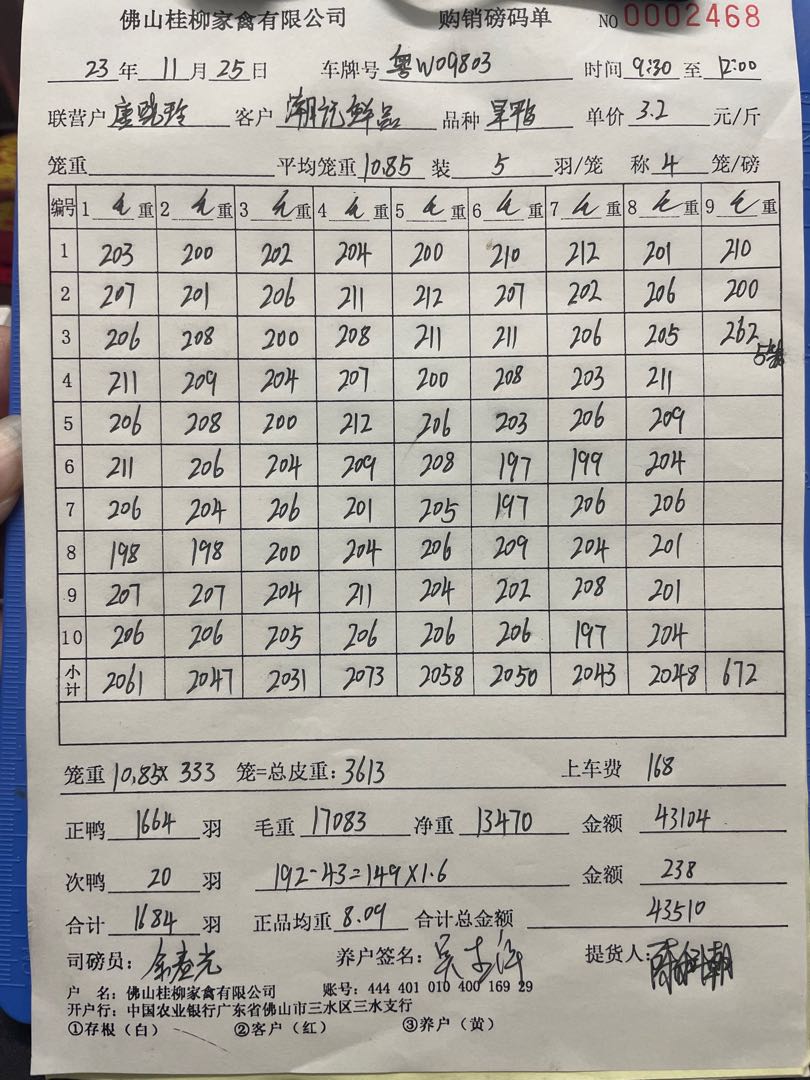 佛山桂柳家禽有限公司 购销磅码单 NO 0002468
23 年 11 月 25 日 车牌号 粤W09803 时间 9:30 至 12:00
联营户 客户 潮记鲜品 品种 单价 3.2 元/斤
笼重 平均笼重 10.85 装 5 羽/笼 称 4 笼/磅
编号 1 毛 重 2 毛 重 3 毛 重 4 毛 重 5 毛 重 6 毛 重 7 毛 重 8 毛 重 9 毛 重
1 203 200 202 204 200 210 212 201 210
2 207 201 206 211 212 207 202 206 200
3 206 208 200 208 211 211 206 205 262
5笼
4 211 209 204 207 200 208 203 211
5 206 208 200 212 206 203 206 209
6 211 206 204 209 208 197 199 204
7 206 204 206 201 205 197 206 206
8 198 198 200 204 206 209 204 201
9 207 207 204 211 204 202 208 201
10 206 206 205 206 206 206 197 204
小计 2061 2047 2031 2073 2058 2050 2043 2048 672
笼重 10.85× 333 笼=总皮重: 3613 上车费 168
正鸭 1664 羽 毛重 17083 净重 13470 金额 43104
次鸭 20 羽 192-43=149×1.6 金额 238
合计 1684 羽 正品均重 8.09 合计总金额 43510
司磅员: 养户签名: 提货人:
户 名: 佛山桂柳家禽有限公司 账号: 444 401 010 400 169 29
开户行: 中国农业银行广东省佛山市三水区三水支行
①存根(白) ②客户(红) ③养户(黄)